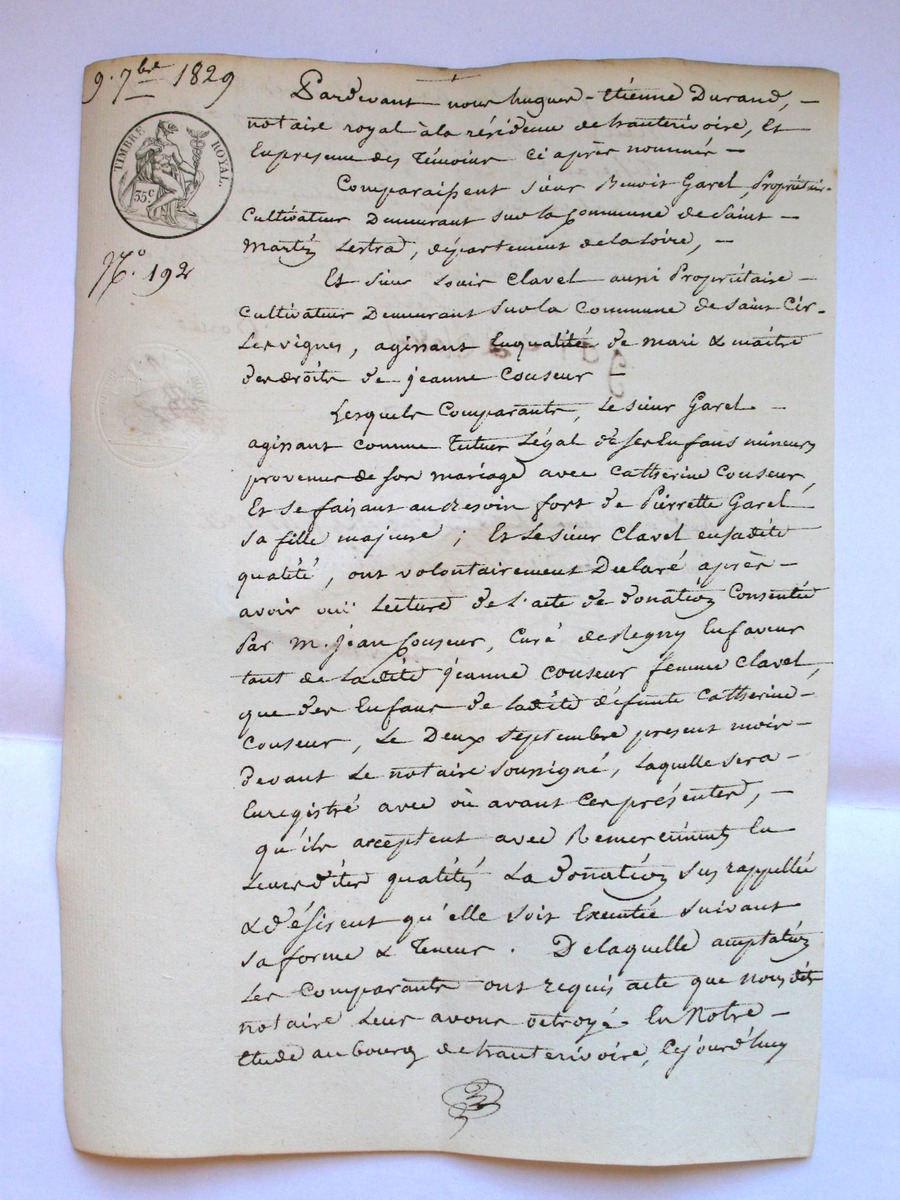 9. 7bre 1829
TIMBRE ROYAL.
35 c
N.° 192
Pardevant nous hugues-Etienne Durand, –
notaire royal à la résidence de hauterivoire, Et
En presence des Témoins ci après nommés –
Comparaissent sieur Benoit Garel, Propriétaire
Cultivateur Demeurant sur la Commune de Saint –
Martin Lestra, département de la Loire, –
Et sieur Louis Clavel aussi Propriétaire –
Cultivateur Demeurant sur la Commune de Saint Cir-
Les vignes, agissant En qualité de mari & maitre
des droits de jeanne Couseur –
Lesquels Comparants, Le sieur Garel –
agissant comme Tuteur Légal de ses Enfans mineurs
provenus de son mariage avec Catherine Couseur,
Et se faisant au besoin fort de Pierrette Garel
sa fille majeure ; Et Le sieur Clavel en sadite
qualité, ont volontairement Déclaré après –
avoir oui Lecture de L'acte de donation Consentie
Par m. Jean Couseur, Curé de Regny En faveur
tant de Ladite jeanne Couseur femme Clavel,
que des Enfans de Ladite défunte Catherine –
Couseur, Le Deux septembre present mois –
devant Le notaire soussigné, Laquelle sera –
Enregistré avec où avant Ces présentes, –
qu'ils acceptent avec Remerciment En
Leurs dites qualités La donation sus rappellée
& désirent qu'elle soit Exécutée suivant
sa forme & Teneur . De laquelle acceptation
Les Comparants ont requis acte que nous dit
notaire Leur avons octroyé. En Notre –
Etude au bourg de hauterivoire, Cejourd'huy